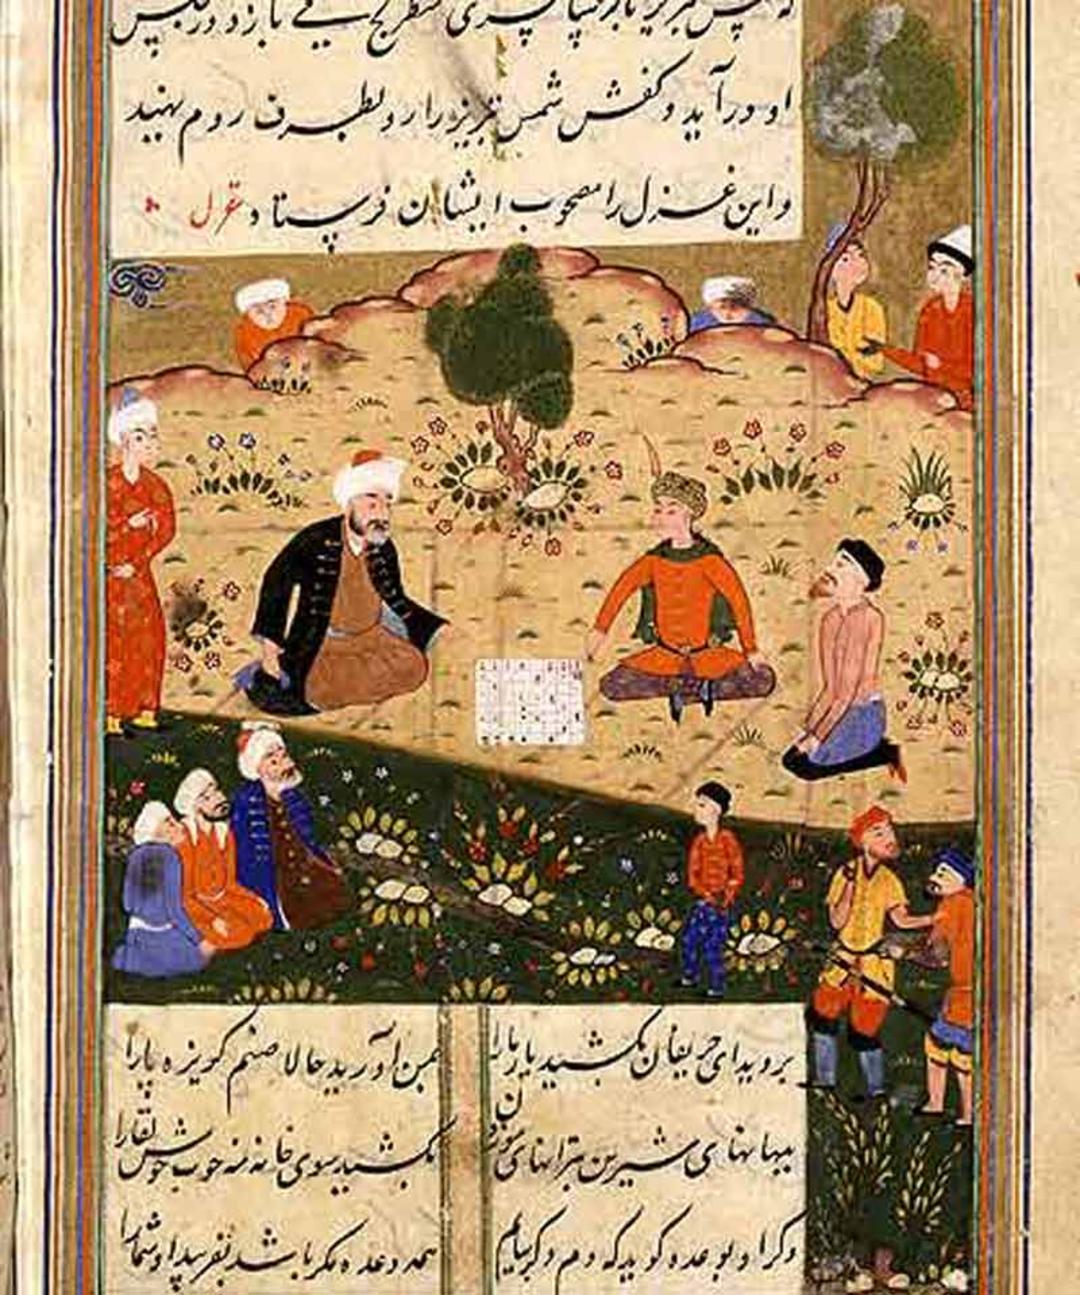 تبریز با ترسا پسری شطرنج می بازد در
او درآید و کفش شمس تبریز را رو بطرف روم بنهید
و این غزل را مصحوب ایشان فرستاد غزل
بروید ای حریفان بکشید یار ما را بمن آورید حالا صنم گریزه پا را
ببهانهای شیرین بترانهای موزون بکشید سوی خانه مه خوب خوش لقا را
وگر او بوعده گوید که دم دگر بیایم همه وعده مکر باشد بفریبد او شما را